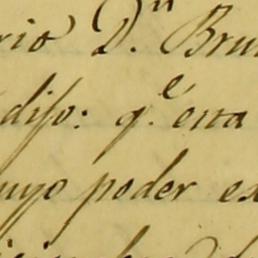 rio D.ⁿ Bru
diſo: q.ᵉ esta
cuyo poder ex